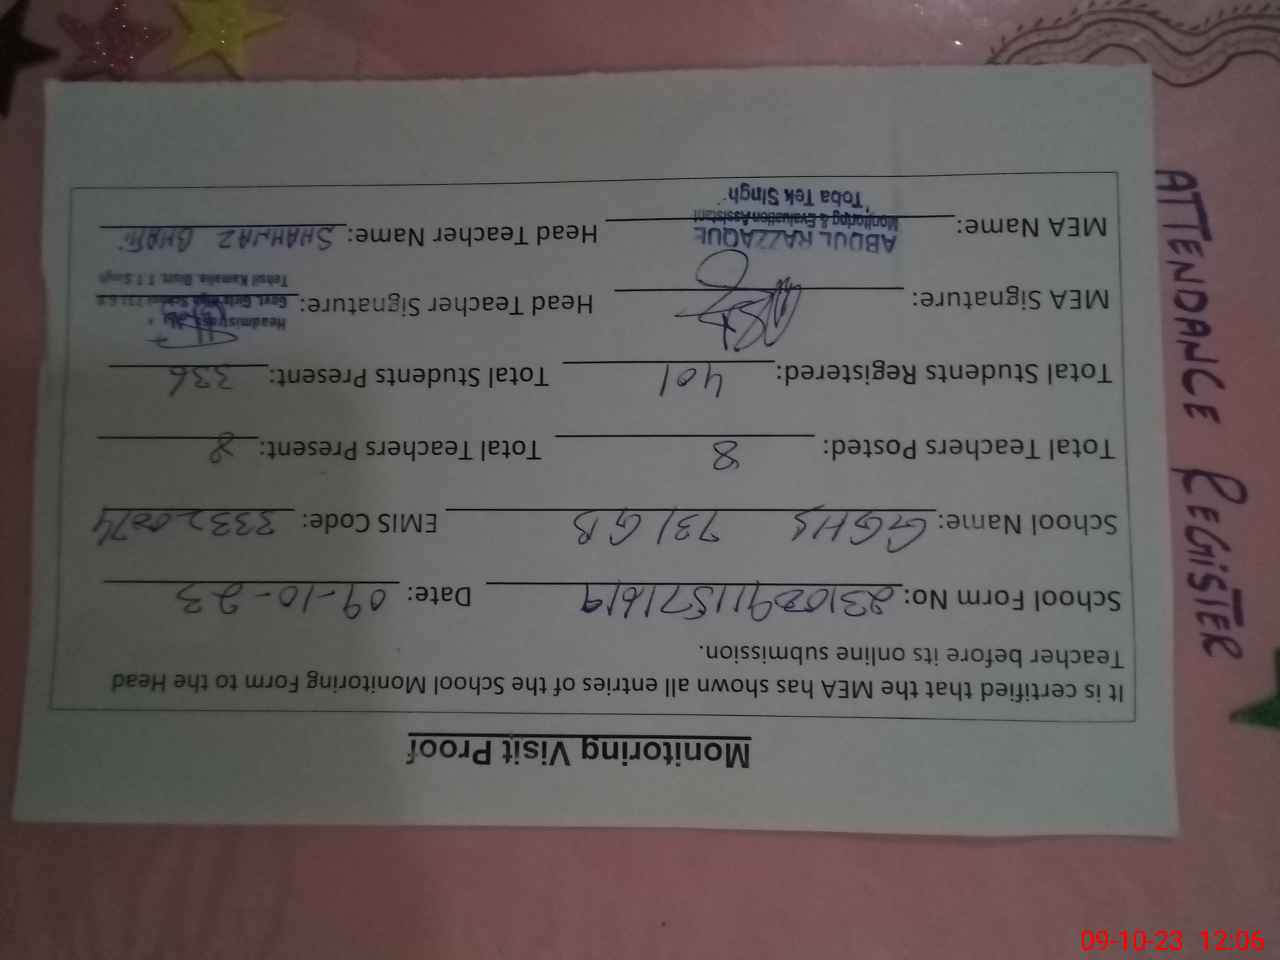 Monitoring Visit Proof
It is certified that the MEA has shown all entries of the School Monitoring Form to the Head
Teacher before its online submission.
School Form No: Date: 09-10-23
School Name: GGHS 731 GB EMIS Code: 33320074
Total Teachers Posted: 8 Total Teachers Present: 8
Total Students Registered: 401 Total Students Present: 336
MEA Signature: Head Teacher Signature:
Headmistress
Govt. Girls High School 731 G.B
Tehsil Kamalia, Distt. T.T Singh
MEA Name: Head Teacher Name: SHAHNAZ BHATTI
ABDUL RAZZAQUE
Monitoring & Evaluation Assistant
Toba Tek Singh
ATTENDANCE REGISTER
09-10-23 12:06